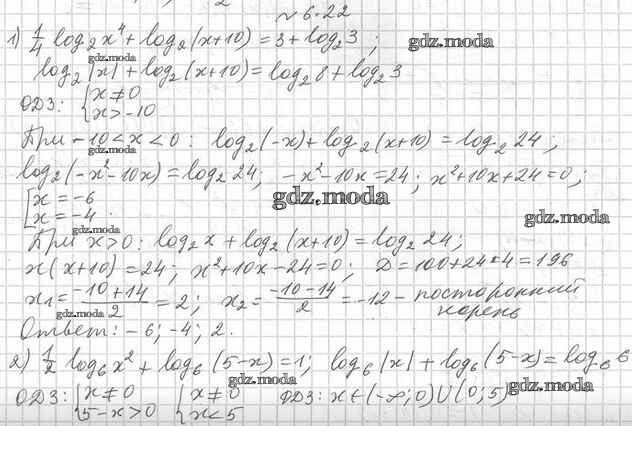 № 6.22
1) 1/4 log₂x⁴ + log₂(x+10) = 3 + log₂3 ;
gdz.moda
gdz.moda
log₂|x| + log₂(x+10) = log₂8 + log₂3
ОДЗ: { x ≠ 0
x > -10
При -10 < x < 0 : log₂(-x) + log₂(x+10) = log₂24 ;
gdz.moda
log₂(-x²-10x) = log₂24; -x²-10x = 24; x²+10x+24=0;
[ x = -6
x = -4 .
gdz.moda
gdz.moda
gdz.moda
При x>0: log₂x + log₂(x+10) = log₂24;
x(x+10) = 24; x²+10x-24=0; D = 100+24*4 = 196
x₁ = (-10+14)/2 = 2; x₂ = (-10-14)/2 = -12 - посторонний
корень
gdz.moda
Ответ: -6; -4; 2.
2) 1/2 log₆x² + log₆(5-x) = 1; log₆|x| + log₆(5-x) = log₆6
gdz.moda
gdz.moda
ОДЗ: { x ≠ 0 { x ≠ 0 ОДЗ: x ∈ (-∞; 0) ∪ (0; 5)
5-x > 0 x < 5